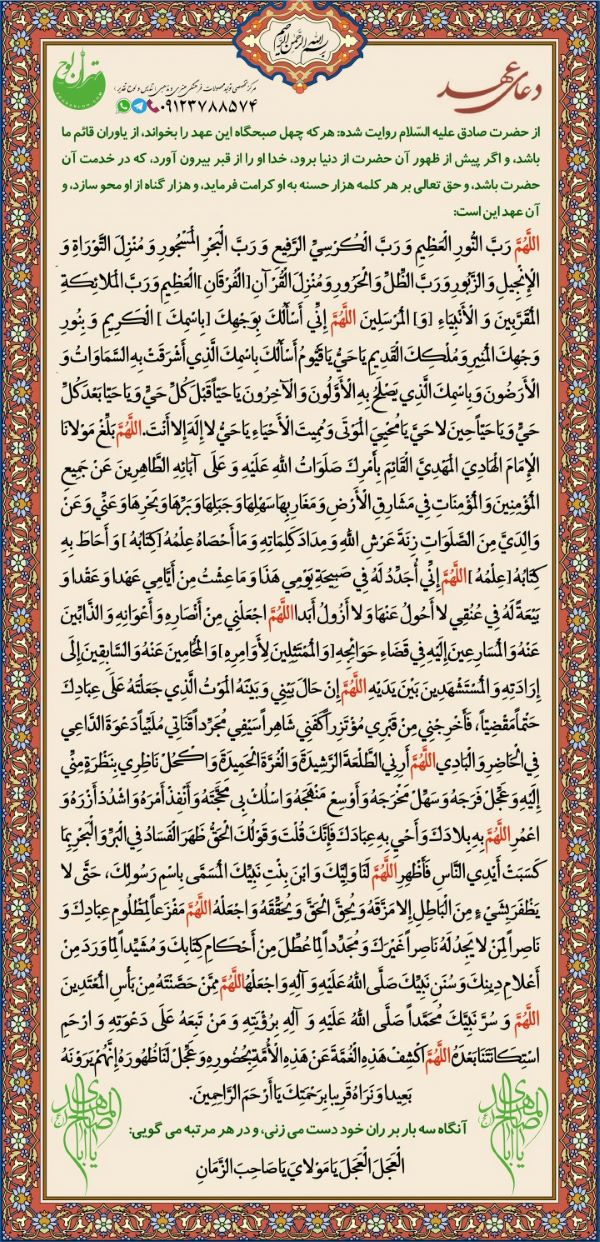 بسم الله الرحمن الرحیم
دعای عهد
تهران لوح
۰۹۱۲۳۷۸۸۵۷۴
از حضرت صادق علیه السّلام روایت شده: هر که چهل صبحگاه این عهد را بخواند، از یاوران قائم ما
باشد، و اگر پیش از ظهور آن حضرت از دنیا برود، خدا او را از قبر بیرون آورد، که در خدمت آن
حضرت باشد، و حق تعالی بر هر کلمه هزار حسنه به او کرامت فرماید، و هزار گناه از او محو سازد، و
آن عهد این است:
اللَّهُمَّ رَبَّ النُّورِ الْعَظِيمِ وَ رَبَّ الْكُرْسِيِّ الرَّفِيعِ وَ رَبَّ الْبَحْرِ الْمَسْجُورِ وَ مُنْزِلَ التَّوْرَاةِ وَ
الْإِنْجِيلِ وَ الزَّبُورِ وَ رَبَّ الظِّلِّ وَ الْحَرُورِ وَ مُنْزِلَ الْقُرْآنِ [الْفُرْقَانِ] الْعَظِيمِ وَ رَبَّ الْمَلائِكَةِ
الْمُقَرَّبِينَ وَ الْأَنْبِيَاءِ [وَ] الْمُرْسَلِينَ اللَّهُمَّ إِنِّي أَسْأَلُكَ بِوَجْهِكَ [بِاسْمِكَ] الْكَرِيمِ وَ بِنُورِ
وَجْهِكَ الْمُنِيرِ وَ مُلْكِكَ الْقَدِيمِ يَا حَيُّ يَا قَيُّومُ أَسْأَلُكَ بِاسْمِكَ الَّذِي أَشْرَقَتْ بِهِ السَّمَاوَاتُ وَ
الْأَرَضُونَ وَ بِاسْمِكَ الَّذِي يَصْلَحُ بِهِ الْأَوَّلُونَ وَ الْآخِرُونَ يَا حَيّاً قَبْلَ كُلِّ حَيٍّ وَ يَا حَيّاً بَعْدَ كُلِّ
حَيٍّ وَ يَا حَيّاً حِينَ لا حَيَّ يَا مُحْيِيَ الْمَوْتَى وَ مُمِيتَ الْأَحْيَاءِ يَا حَيُّ لا إِلَهَ إِلا أَنْتَ. اللَّهُمَّ بَلِّغْ مَوْلانَا
الْإِمَامَ الْهَادِيَ الْمَهْدِيَّ الْقَائِمَ بِأَمْرِكَ صَلَوَاتُ اللهِ عَلَيْهِ وَ عَلَى آبَائِهِ الطَّاهِرِينَ عَنْ جَمِيعِ
الْمُؤْمِنِينَ وَ الْمُؤْمِنَاتِ فِي مَشَارِقِ الْأَرْضِ وَ مَغَارِبِهَا سَهْلِهَا وَ جَبَلِهَا وَ بَرِّهَا وَ بَحْرِهَا وَ عَنِّي وَ عَنْ
وَالِدَيَّ مِنَ الصَّلَوَاتِ زِنَةَ عَرْشِ اللهِ وَ مِدَادَ كَلِمَاتِهِ وَ مَا أَحْصَاهُ عِلْمُهُ [كِتَابُهُ] وَ أَحَاطَ بِهِ
كِتَابُهُ [عِلْمُهُ] اللَّهُمَّ إِنِّي أُجَدِّدُ لَهُ فِي صَبِيحَةِ يَوْمِي هَذَا وَ مَا عِشْتُ مِنْ أَيَّامِي عَهْدا وَ عَقْدا وَ
بَيْعَةً لَهُ فِي عُنُقِي لا أَحُولُ عَنْهَا وَ لا أَزُولُ أَبَدا اللَّهُمَّ اجْعَلْنِي مِنْ أَنْصَارِهِ وَ أَعْوَانِهِ وَ الذَّابِّينَ
عَنْهُ وَ الْمُسَارِعِينَ إِلَيْهِ فِي قَضَاءِ حَوَائِجِهِ [وَ الْمُمْتَثِلِينَ لِأَوَامِرِهِ] وَ الْمُحَامِينَ عَنْهُ وَ السَّابِقِينَ إِلَى
إِرَادَتِهِ وَ الْمُسْتَشْهَدِينَ بَيْنَ يَدَيْهِ اللَّهُمَّ إِنْ حَالَ بَيْنِي وَ بَيْنَهُ الْمَوْتُ الَّذِي جَعَلْتَهُ عَلَى عِبَادِكَ
حَتْماً مَقْضِيّاً، فَأَخْرِجْنِي مِنْ قَبْرِي مُؤْتَزِراً كَفَنِي شَاهِراً سَيْفِي مُجَرِّداً قَنَاتِي مُلَبِّياً دَعْوَةَ الدَّاعِي
فِي الْحَاضِرِ وَ الْبَادِي اللَّهُمَّ أَرِنِي الطَّلْعَةَ الرَّشِيدَةَ وَ الْغُرَّةَ الْحَمِيدَةَ وَ اكْحُلْ نَاظِرِي بِنَظْرَةٍ مِنِّي
إِلَيْهِ وَ عَجِّلْ فَرَجَهُ وَ سَهِّلْ مَخْرَجَهُ وَ أَوْسِعْ مَنْهَجَهُ وَ اسْلُكْ بِي مَحَجَّتَهُ وَ أَنْفِذْ أَمْرَهُ وَ اشْدُدْ أَزْرَهُ وَ
اعْمُرِ اللَّهُمَّ بِهِ بِلادَكَ وَ أَحْيِ بِهِ عِبَادَكَ فَإِنَّكَ قُلْتَ وَ قَوْلُكَ الْحَقُّ ظَهَرَ الْفَسَادُ فِي الْبَرِّ وَ الْبَحْرِ بِمَا
كَسَبَتْ أَيْدِي النَّاسِ فَأَظْهِرِ اللَّهُمَّ لَنَا وَلِيَّكَ وَ ابْنَ بِنْتِ نَبِيِّكَ الْمُسَمَّى بِاسْمِ رَسُولِكَ، حَتَّى لا
يَظْفَرَ بِشَيْءٍ مِنَ الْبَاطِلِ إِلا مَزَّقَهُ وَ يُحِقَّ الْحَقَّ وَ يُحَقِّقَهُ وَ اجْعَلْهُ اللَّهُمَّ مَفْزَعاً لِمَظْلُومِ عِبَادِكَ وَ
نَاصِراً لِمَنْ لا يَجِدُ لَهُ نَاصِراً غَيْرَكَ وَ مُجَدِّداً لِمَا عُطِّلَ مِنْ أَحْكَامِ كِتَابِكَ وَ مُشَيِّداً لِمَا وَرَدَ مِنْ
أَعْلامِ دِينِكَ وَ سُنَنِ نَبِيِّكَ صَلَّى اللهُ عَلَيْهِ وَ آلِهِ وَ اجْعَلْهُ اللَّهُمَّ مِمَّنْ حَصَّنْتَهُ مِنْ بَأْسِ الْمُعْتَدِينَ
اللَّهُمَّ وَ سُرَّ نَبِيَّكَ مُحَمَّداً صَلَّى اللهُ عَلَيْهِ وَ آلِهِ بِرُؤْيَتِهِ وَ مَنْ تَبِعَهُ عَلَى دَعْوَتِهِ وَ ارْحَمِ
اسْتِكَانَتَنَا بَعْدَهُ اللَّهُمَّ اكْشِفْ هَذِهِ الْغُمَّةَ عَنْ هَذِهِ الْأُمَّةِ بِحُضُورِهِ وَ عَجِّلْ لَنَا ظُهُورَهُ إِنَّهُمْ يَرَوْنَهُ
بَعِيدا وَ نَرَاهُ قَرِيبا بِرَحْمَتِكَ يَا أَرْحَمَ الرَّاحِمِينَ.
آنگاه سه بار بر ران خود دست می زنی، و در هر مرتبه می گویی:
الْعَجَلَ الْعَجَلَ يَا مَوْلايَ يَا صَاحِبَ الزَّمَانِ